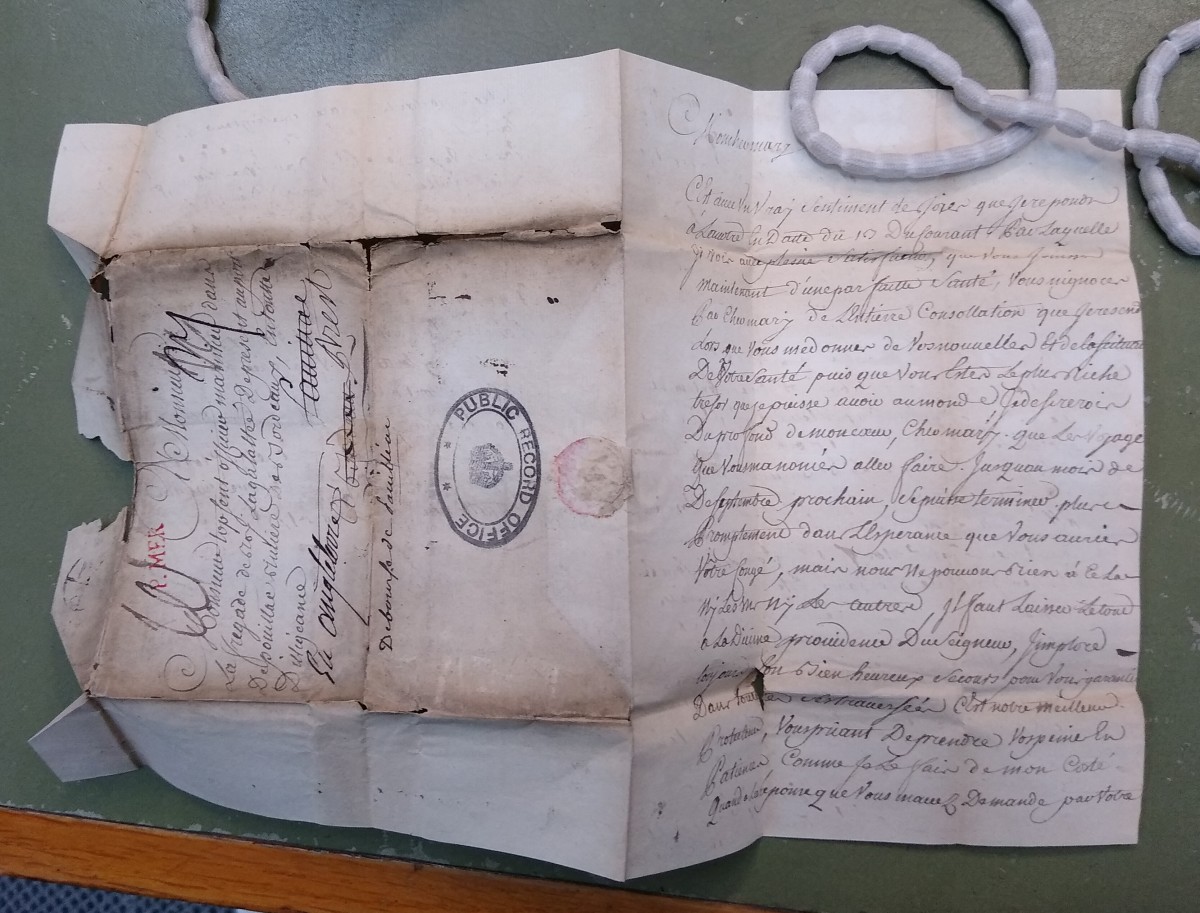 Mon cher mary
C'est avec un vray sentiment de joyes que je reponds
a la votre en Datte du 17 Du Courant Par Laquelle
Je vois avec plesne Satisfaction, que vous jouissez
maintenant d'une par faitte Santé, vous nignorer
Pas Cher mary de L'entierre Consollation que je resend
Lors que vous me donner de vos nouvelles Et de La situation
De votre Santé puis que vous Estes Le plus Riche
tresor que je puisse avoir au monde Je desirerois
Du profond de mon coeur, Cher mary, que Les voyage
que vous manoncér aller faire. Jusquau mois de
De Septembre prochain, Se put terminer plus
Promptement dans L'Esperance que vous auriez
votre Congé, mais nous ne pouvons Rien à Cela
Ny Les uns Ny Les autres, Jl faut Laisser Le tout
a La Divine providence Du Seigneur, J'implore
toujours son Bien heureux Secours pour vous garantir
Dans toutes Ses traversées C'est notre meilleur
Protecteur, vous priant De prendre vos peine En
Patience Comme je Le fais de mon Costé
Quand a la que vous mavez Demande par votre
A Monsieur
Monsieur topsent officier marinier dans
La fregade du roy Lagalathée De preset au mois
De pouillac riviere des Bordeaux En tonne
Disigeanie
R. MER
Brest
Debourse de
PUBLIC RECORD OFFICE